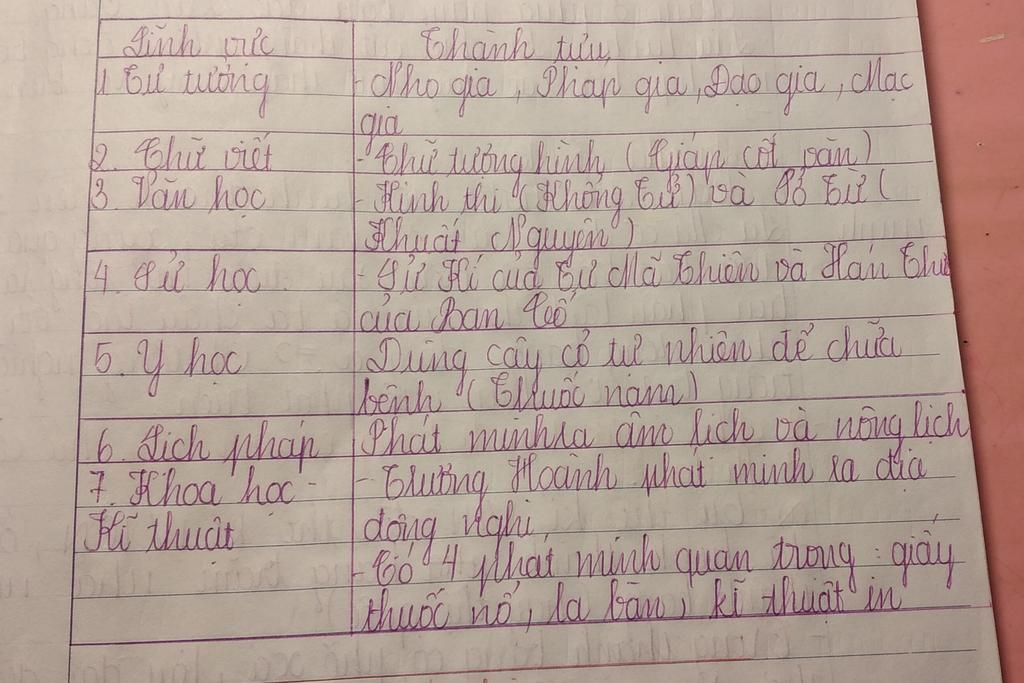 Lĩnh vực Thành tựu
1 Tư tưởng - Nho gia, Pháp gia, Đạo gia, Mặc
gia
2. Chữ viết - Chữ tượng hình (Giáp cốt văn)
3. Văn học - Kinh thi (Khổng Tử) và Sở Từ (
Khuất Nguyên)
4. Sử học - Sử Kí của Tư Mã Thiên và Hán Thư
của Ban Cố
5. Y học Dùng cây cỏ tự nhiên để chữa
bệnh (Thuốc nam)
6. Lịch pháp Phát minh ra âm lịch và nông lịch
7. Khoa học - - Trương Hoành phát minh ra địa
Kĩ thuật động nghi
- Có 4 phát minh quan trọng: giấy
thuốc nổ, la bàn, kĩ thuật in